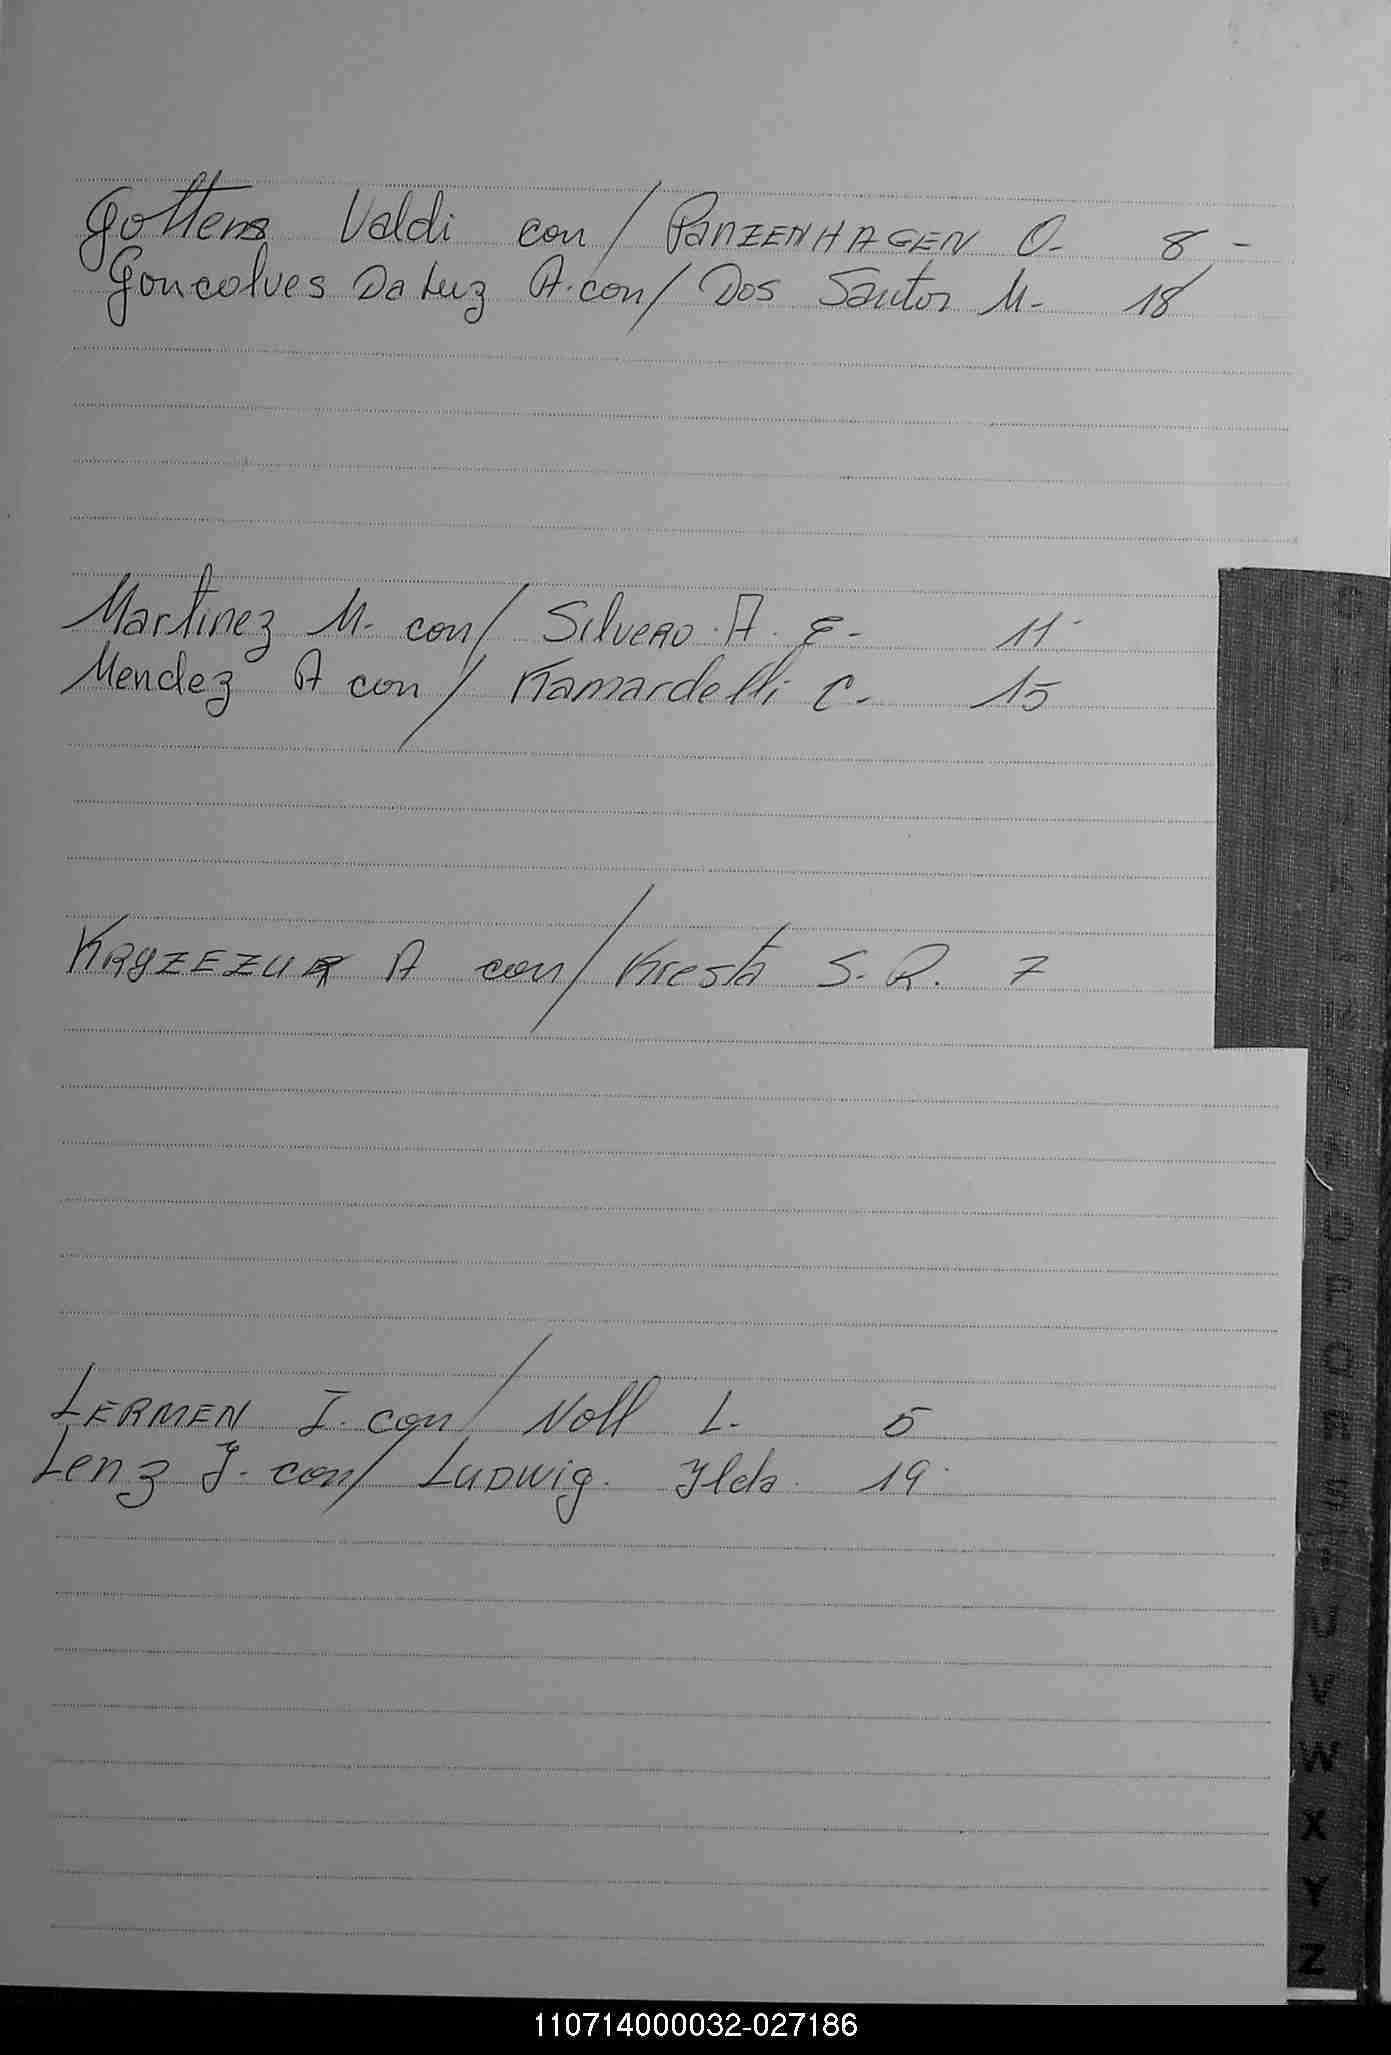 Gottens Valdi con/ PANZENHAGEN O. 8 -
Goncolves Da Luz A. con/ Dos Santos M - 18
Martinez M. con/ Silvero A. E - 11
Mendez A con/ Kamardelli C. 15
A con/ Kresta S. R. 7
LERMEN I. con/ Noll L. 5
Lenz J. con/ Ludwig. Ilda. 19
U
V
W
X
Y
Z
110714000032-027186